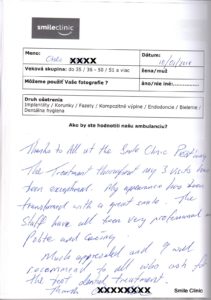 smileclinic
Meno:
XXXX
Dátum:
Veková skupina: do 35 / 35 - 50 / 51 a viac
žena/muž
Môžeme použiť Vaše fotografie ?
áno/nie iné:
Druh ošetrenia
Implantáty / Korunky / Fazety / Kompozitné výplne / Endodoncie / Bielenie /
Dentálna hygiena
Ako by ste hodnotili našu ambulanciu?
Thanks to All at the Smile Clinic
The Treatment throughout my 3 visits has
been exceptional. My appearance has been
transformed with a great smile. The
Staff have all been very professional
Polite and Caring.
Much appreciated and I will
recommend to all who wish for
the best dental Treatment.
Thanks XXXXXXXX
Smile Clinic